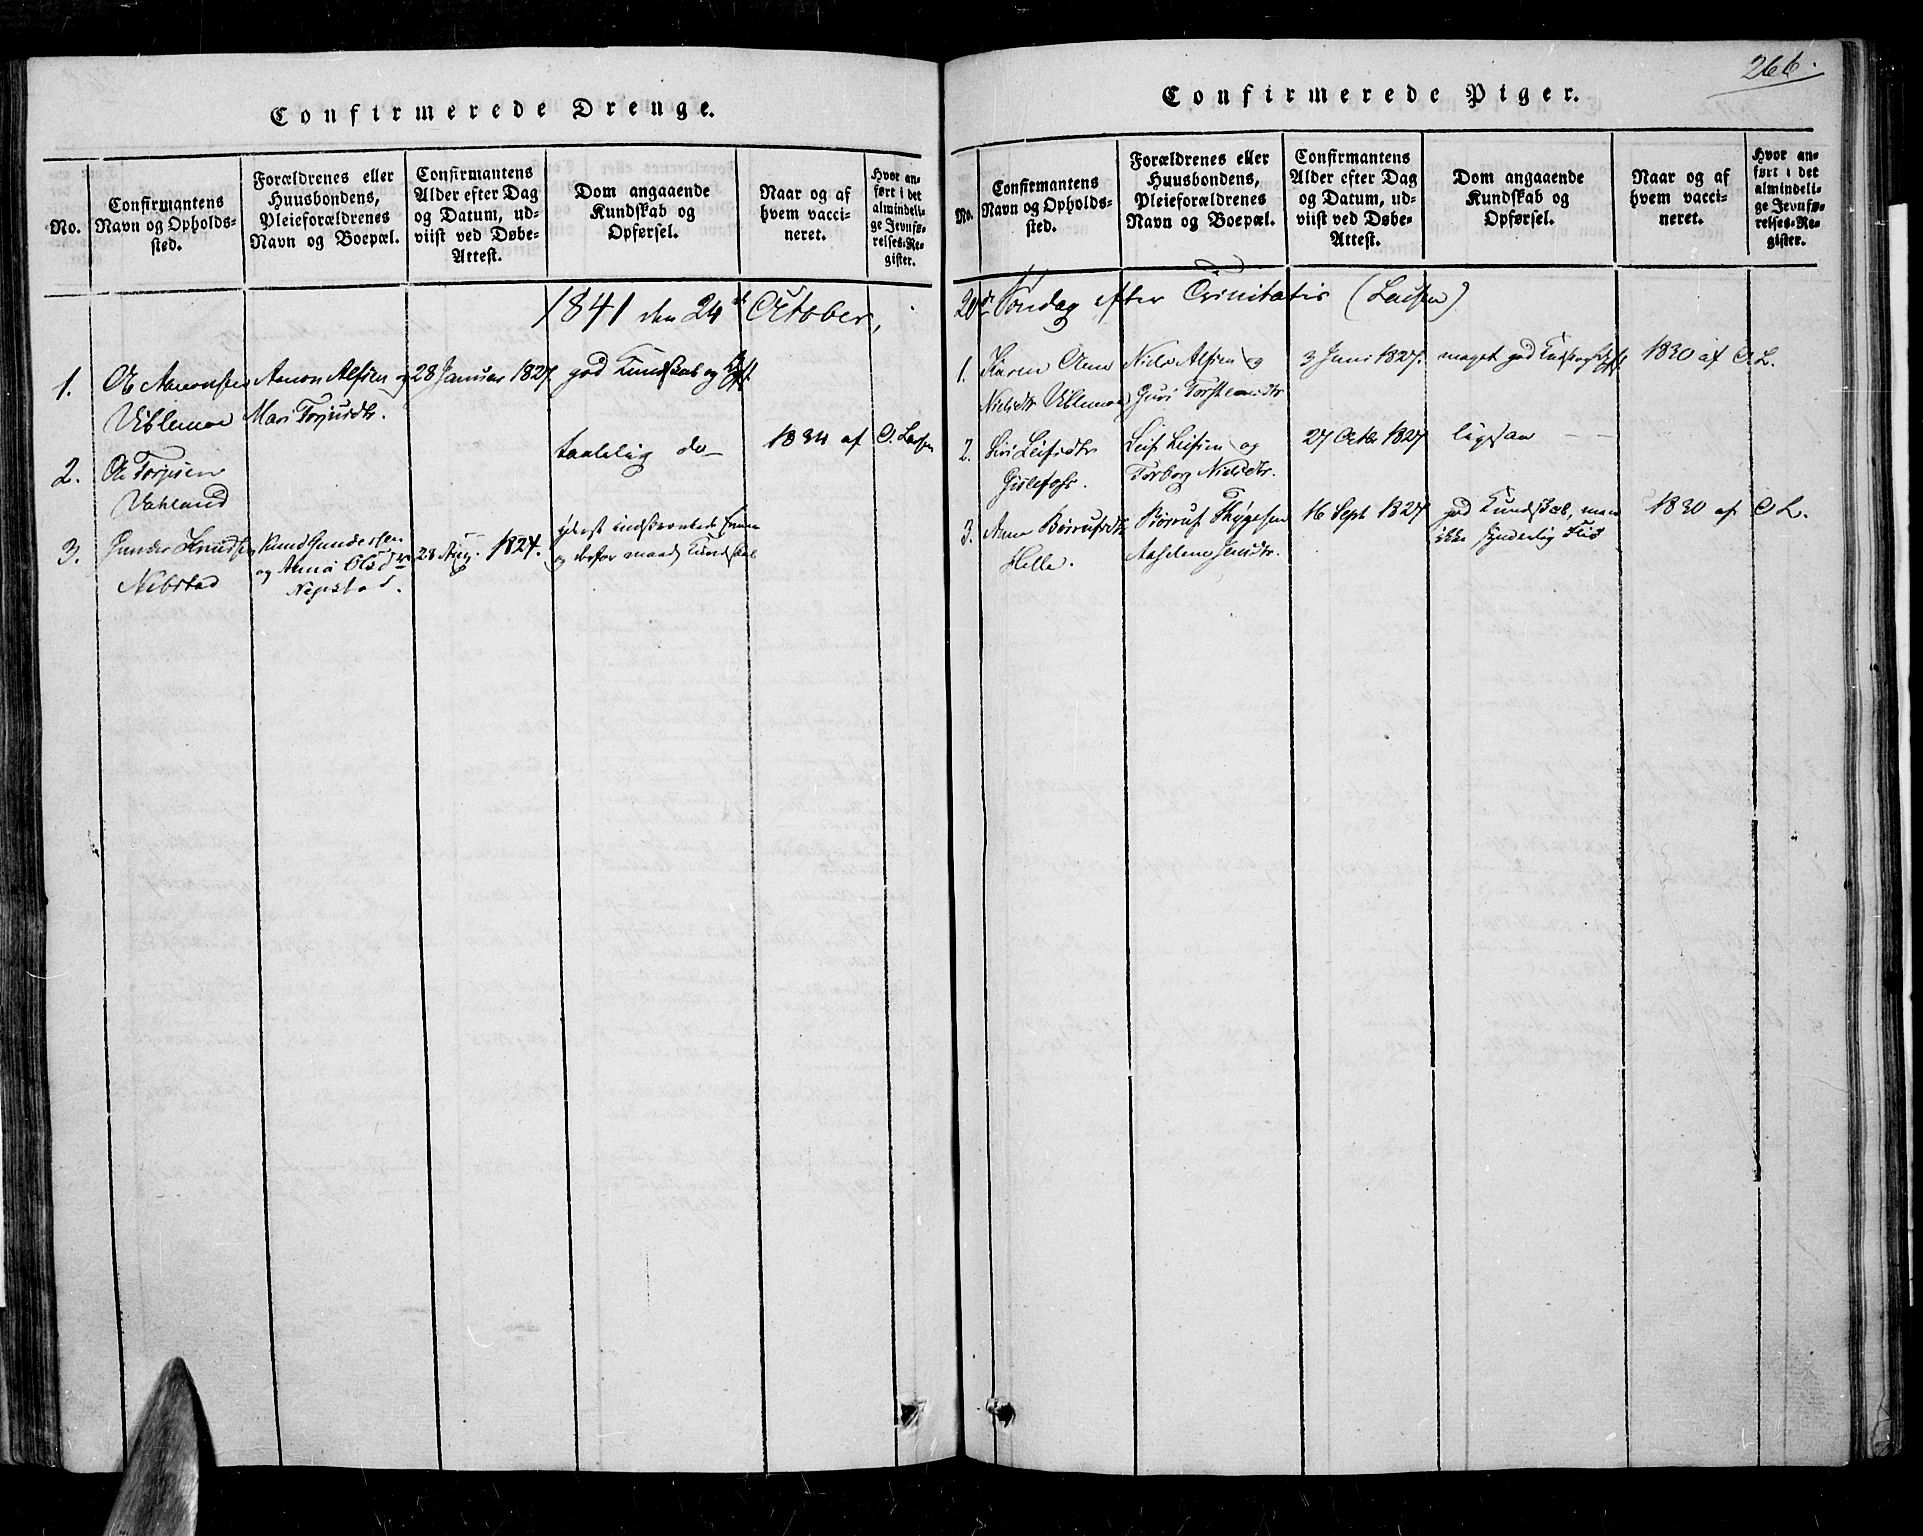 266.
Confirmerede Drenge.
No.
Confirmantens
Navn og Opholds-
sted.
Forældrenes eller
Huusbondens,
Pleieforældrenes
Navn og Boepæl.
Confirmantens
Alder efter Dag
og Datum, ud-
viist ved Døbe-
Attest.
Dom angaaende
Kundskab og
Opførsel.
Naar og af
hvem vacci-
neret.
Hvor an-
ført i det
almindeli-
ge Jevnfø-
relses-Re-
gister.
1841 den 24de October,
1.
Ole Aanonsen
Ublemoe
Aanon Alfsen og
Mari Torjusdtr.
28 Januar 1827.
god Kundskab og Opf.
2.
Ole Torjusen
Vahland
taalelig do
1834 af O. Larsen
3.
Gunder Knudsen
Nebstad
Knud Gundersen
og Anna Olsdtr
Nepstad.
28 Aug. 1824.
yderst indskrænkede Evner
og derfor maadl. Kundskab
Confirmerede Piger.
No.
Confirmantens
Navn og Opholds-
sted.
Forældrenes eller
Huusbondens,
Pleieforældrenes
Navn og Boepæl.
Confirmantens
Alder efter Dag
og Datum, ud-
viist ved Døbe-
Attest.
Dom angaaende
Kundskab og
Opførsel.
Naar og af
hvem vacci-
neret.
Hvor an-
ført i det
almindeli-
ge Jevnfø-
relses-Re-
gister.
20de Søndag efter Trinitatis
1.
Karen
Nielsdtr Ublemoe
Niels Alfsen og
Guri Torstensdtr
3 Juni 1827.
meget god Kundskab og Opf.
1830 af O. L.
2.
Siri Leifsdtr
Gislefoss.
Leif Leifsen og
Torborg Nielsdtr.
27 Octbr 1827
ligesaa — —
3.
Anne Børrufsdtr
Helle.
Børruf Thygesen
Aaselene Jensdtr.
16 Sept 1827
god Kundskab, men
ikke synderlig Flid
1830 af O L.